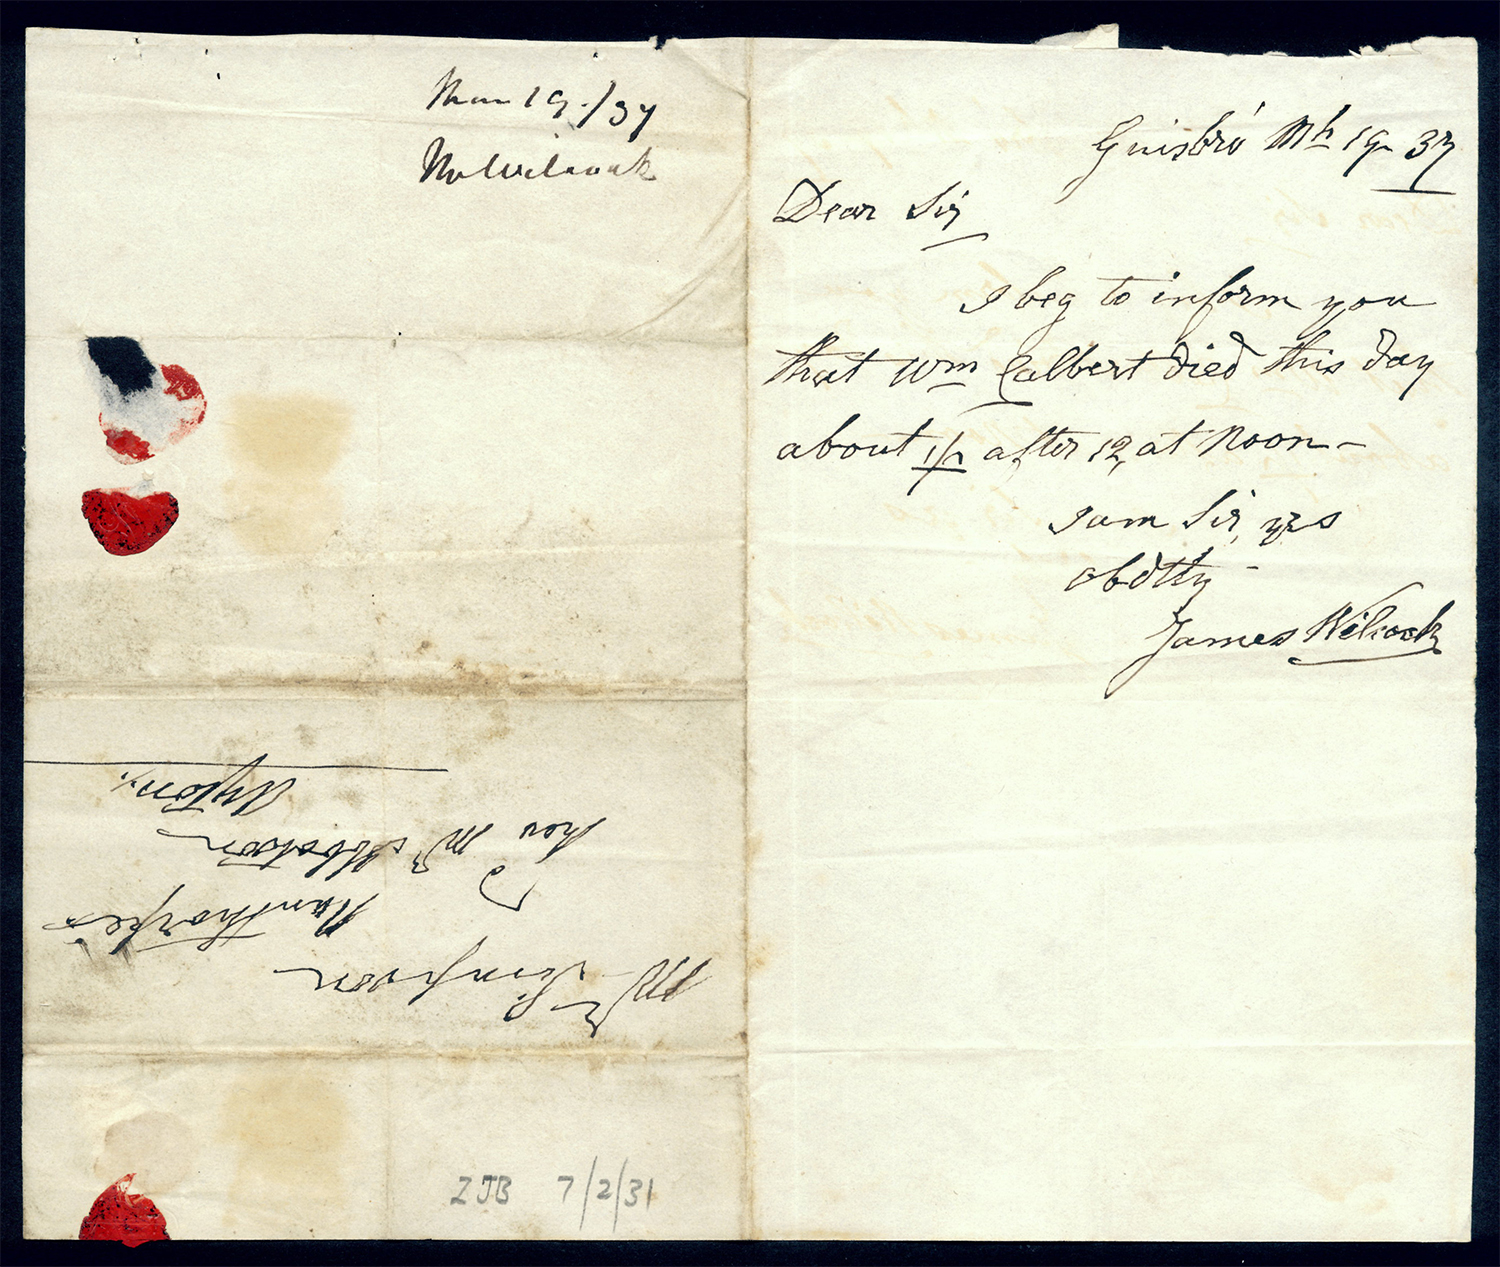 Mar 19./37
Mr Wilcock
Guisbro' Mh 19 37
Dear Sir
I beg to inform you
that Wm Calbert died this day
about 1/2 after 12, at Noon –
I am Sir, yrs
obdtly –
James Wilcock
Mr Simpson
Nunthorpe
To
the Mr Ibbetson
Ayton.
ZJB 7/2/31